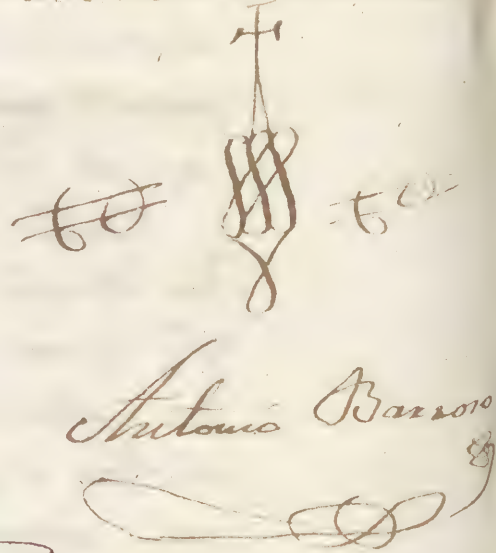 Antonio Barroso